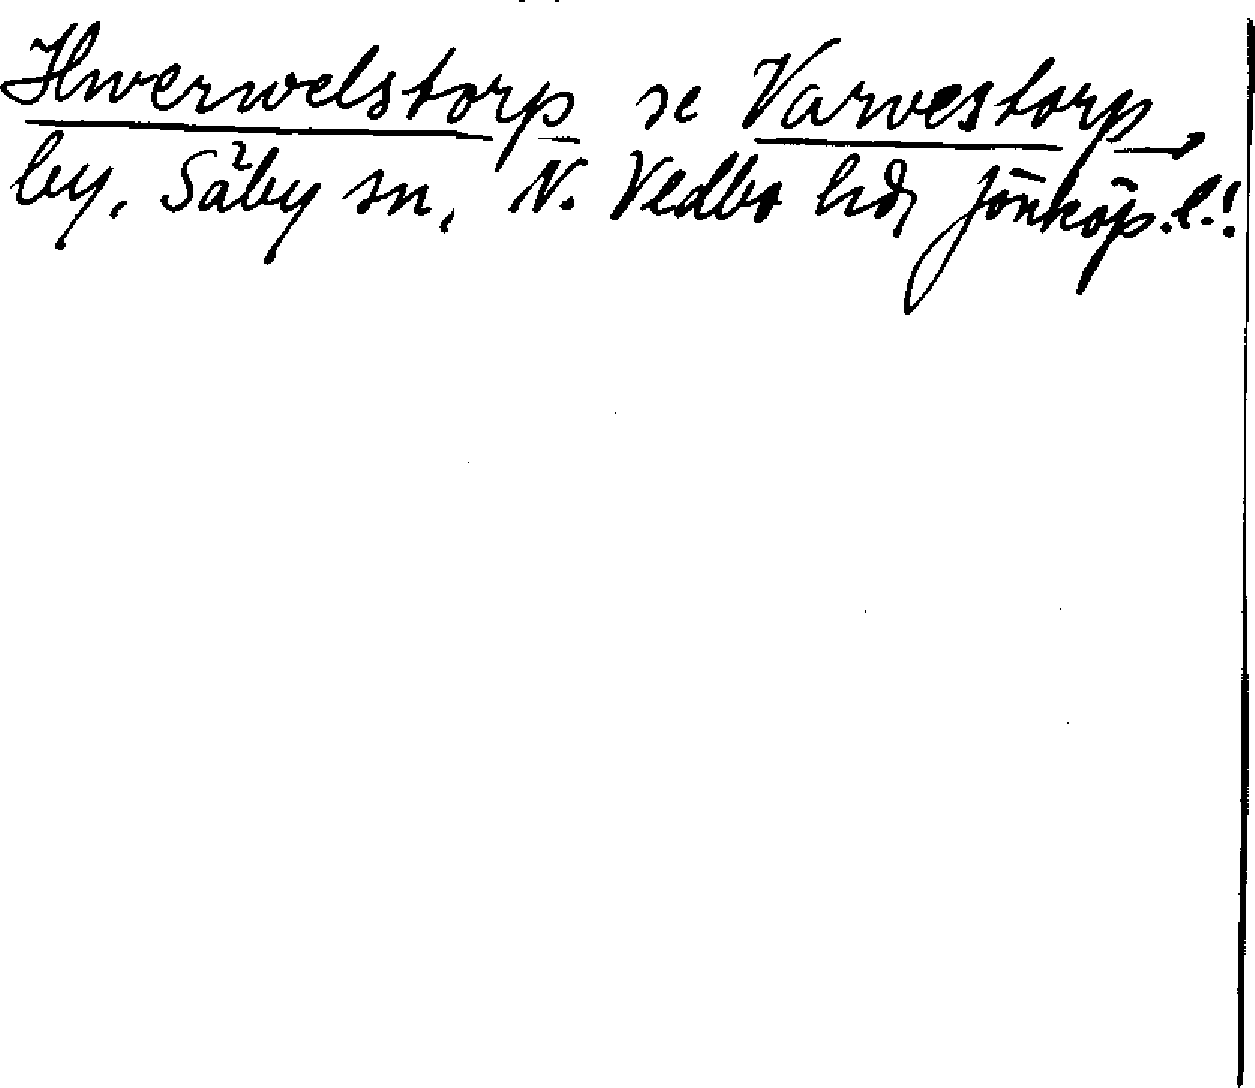 Hwerwelstorp se Varvestorp,
by, Säby sn, N. Vedbo hd, Jönköp. l.!